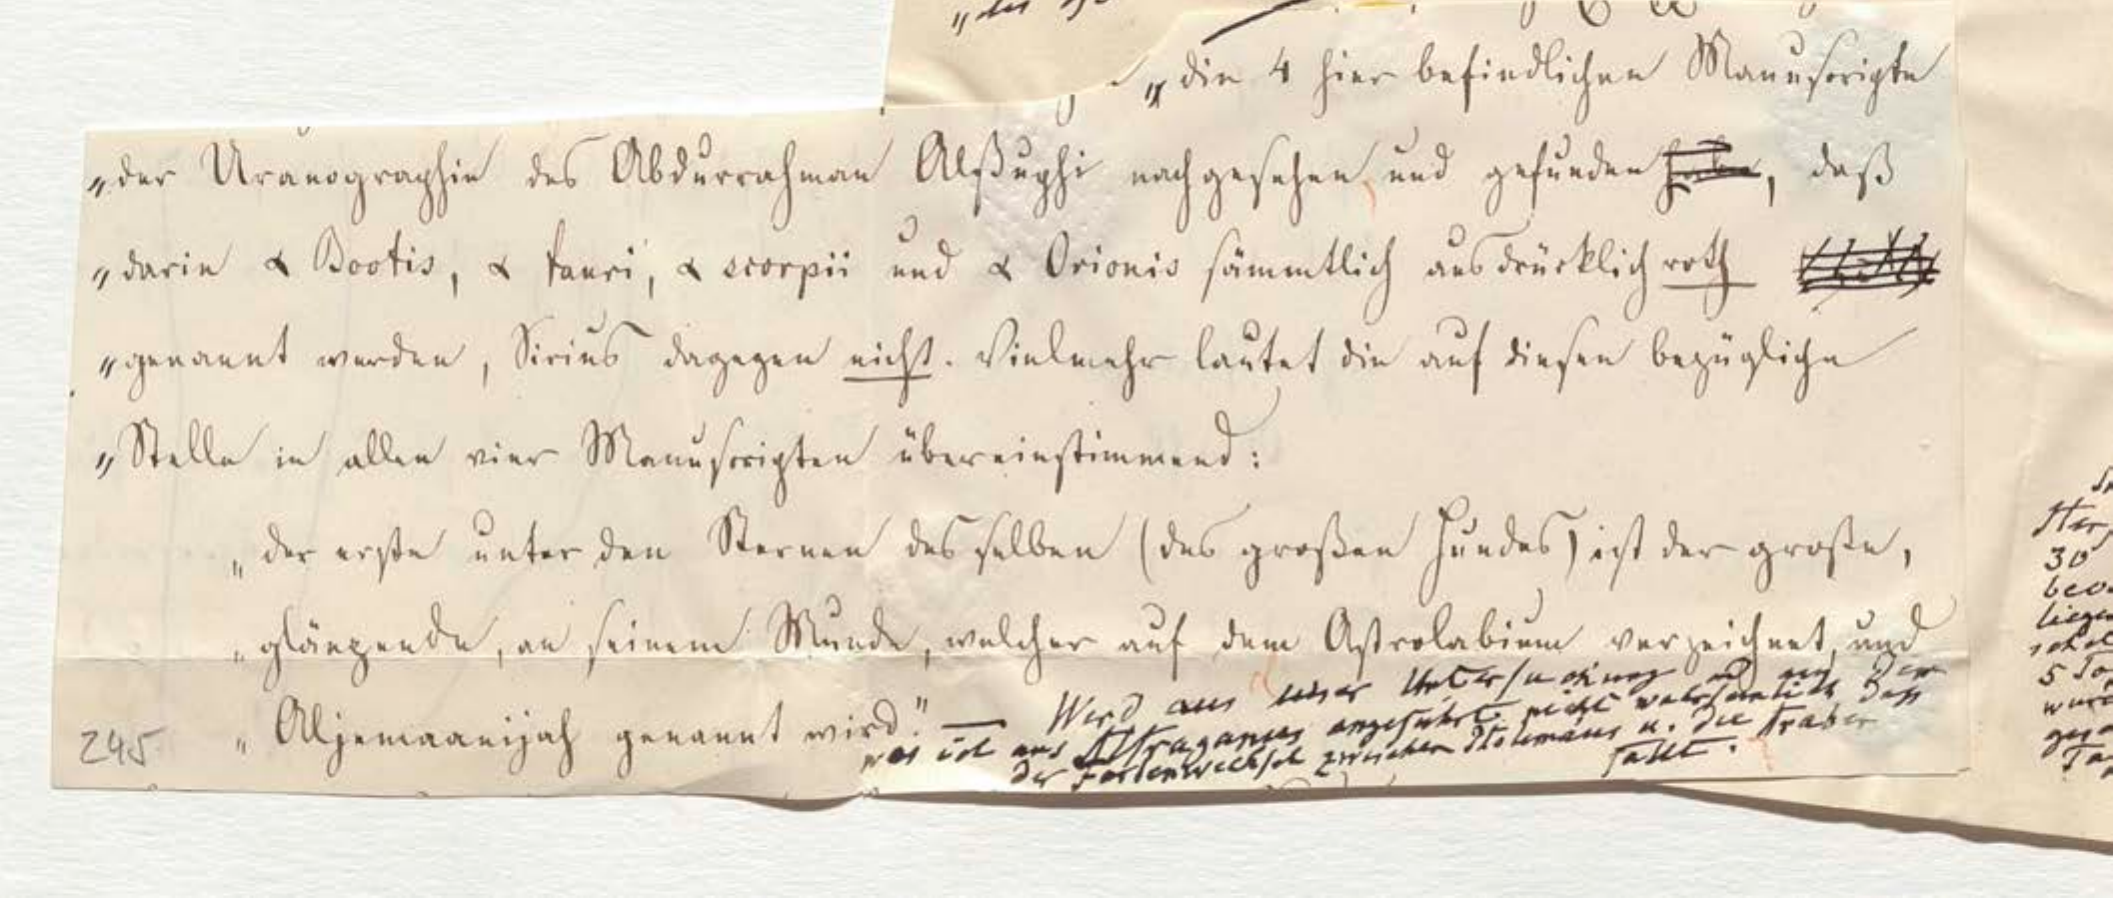 „die 4 hier befindlichen Manuscripte
„der Uranographie des Abdurrahman Alßuphi nachgesehen, und gefunden haben, daß
„darin α Bootis, α tauri, α scorpii und α Orionis sämmtlich ausdrücklich roth
„genannt werden, Sirius dagegen nicht. Vielmehr lautet die auf diesen bezügliche
„Stelle in allen vier Manuscripten übereinstimmend:
„der erste unter den Sternen desselben (des großen Hundes) ist der große,
„glänzende, an seinem Munde, welcher auf dem Astrolabium verzeichnet, und
„Aljemaanijah genannt wird." — Wird aus dieser Untersuchung und aus dem
was ich aus Alfraganus angeführt, nicht wahrscheinlich, dass
der Farbenwechsel zwischen Ptolemäus u. die Araber
fällt.
245
30
5